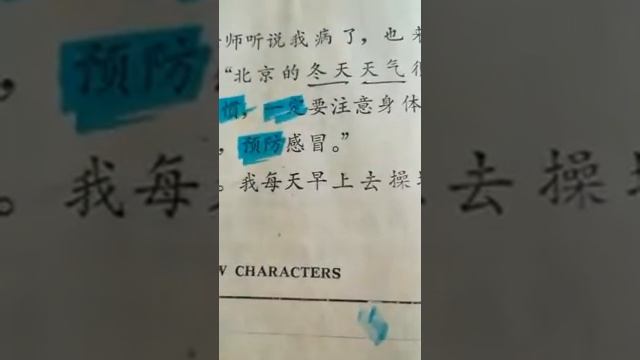 师听说我病了，也
“北京的冬天天气很
惯，一定要注意身体
，预防感冒。”
。我每天早上去操
W CHARACTERS